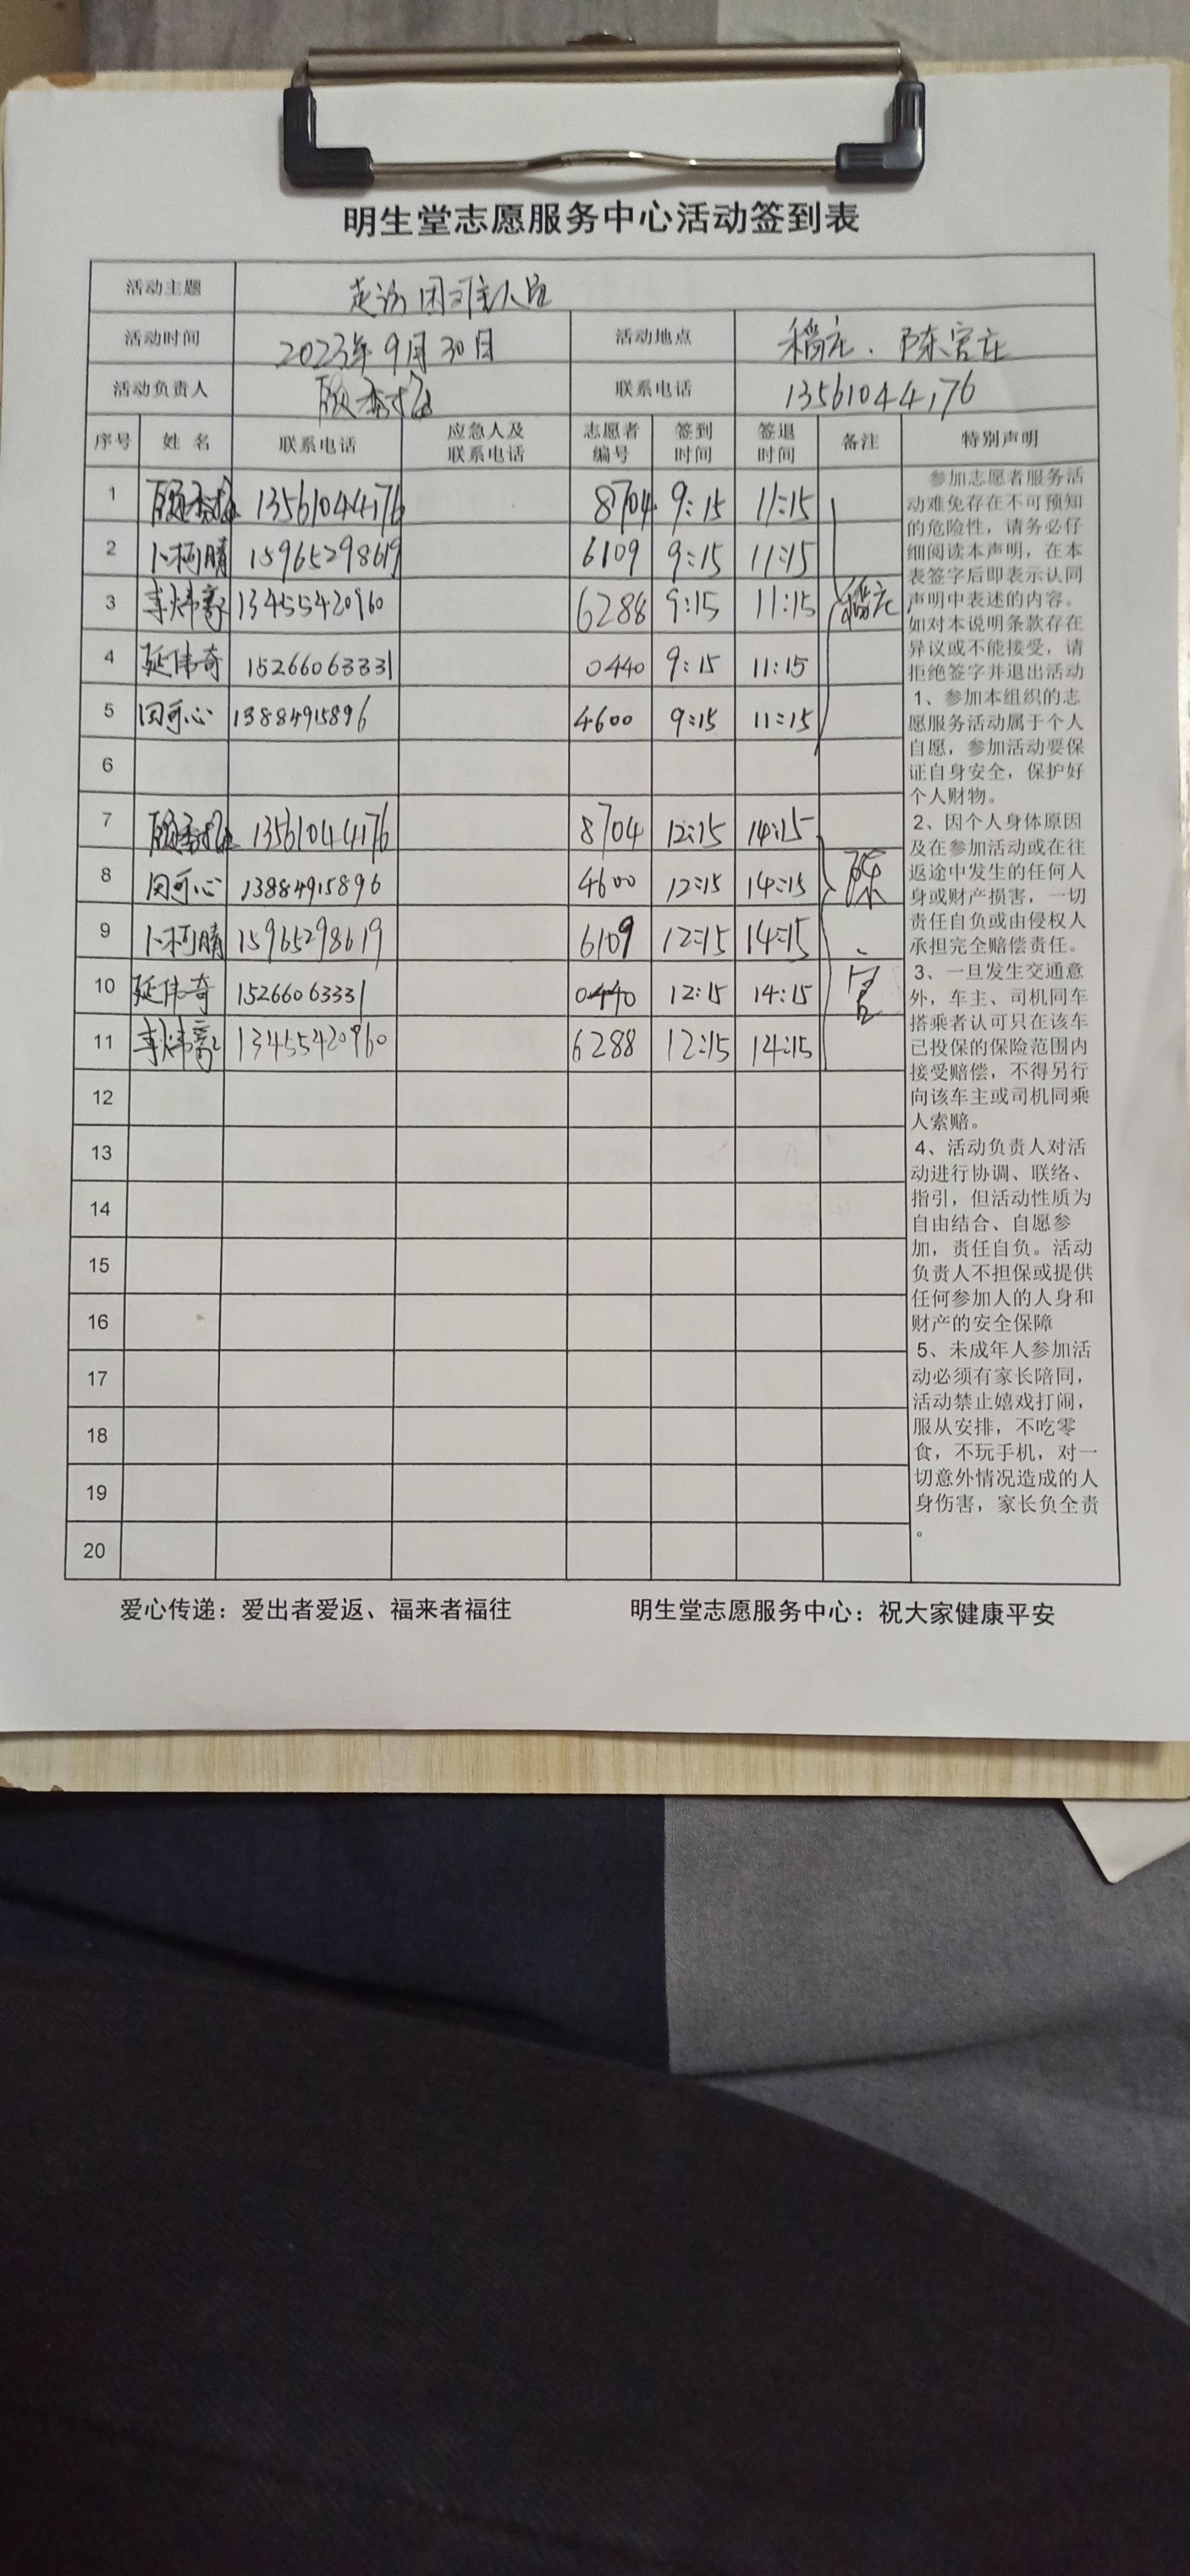 明生堂志愿服务中心活动签到表
活动主题 走访困难人员
活动时间 2023年9月30日 活动地点 稻庄、陈官庄
活动负责人 顾秀梅 联系电话 13561044176
序号 姓名 联系电话 应急人及联系电话 志愿者编号 签到时间 签退时间 备注 特别声明
1 顾秀梅 13561044176 8704 9:15 11:15
2 卜柯晴 15965298619 6109 9:15 11:15
3 李炜 13455420960 6288 9:15 11:15 稻庄
4 延伟奇 15266063331 0440 9:15 11:15
5 田可心 13884915896 4600 9:15 11:15
6
7 顾秀梅 13561044176 8704 12:15 14:15
8 田可心 13884915896 4600 12:15 14:15 陈
9 卜柯晴 15965298619 6109 12:15 14:15
10 延伟奇 15266063331 0440 12:15 14:15 官
11 李炜 13455420960 6288 12:15 14:15
12
13
14
15
16
17
18
19
20
参加志愿者服务活
动难免存在不可预知
的危险性，请务必仔
细阅读本声明，在本
表签字后即表示认同
声明中表述的内容。
如对本说明条款存在
异议或不能接受，请
拒绝签字并退出活动
1、参加本组织的志
愿服务活动属于个人
自愿，参加活动要保
证自身安全，保护好
个人财物。
2、因个人身体原因
及在参加活动或在往
返途中发生的任何人
身或财产损害，一切
责任自负或由侵权人
承担完全赔偿责任。
3、一旦发生交通意
外，车主、司机同车
搭乘者认可只在该车
已投保的保险范围内
接受赔偿，不得另行
向该车主或司机同乘
人索赔。
4、活动负责人对活
动进行协调、联络、
指引，但活动性质为
自由结合、自愿参
加，责任自负。活动
负责人不担保或提供
任何参加人的人身和
财产的安全保障
5、未成年人参加活
动必须有家长陪同，
活动禁止嬉戏打闹，
服从安排，不吃零
食，不玩手机，对一
切意外情况造成的人
身伤害，家长负全责
。
爱心传递：爱出者爱返、福来者福往 明生堂志愿服务中心：祝大家健康平安